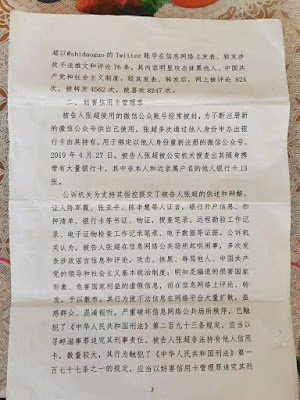 超以@shidaoguo的Twitter账号在信息网络上发表、转发涉
政不法推文和评论76条，其内容明显攻击抹黑他人、中国共
产党和社会主义制度，经其发表、转发后，网上被评论824
次，被转发4562次，被喜欢8247次。
二、妨害信用卡管理罪
被告人张超使用的微信公众账号经常被封，为不断注册新
的微信公众号供自己使用，张超多次通过他人身份申办出银
行卡由其持有，用于绑定以他人身份重新注册的微信公众号。
2019年4月27日，被告人张超被公安机关搜查出其随身携
带有大量银行卡，其中非本人和近亲属户名的他人银行卡13
张。
公诉机关为支持其指控提交了被告人张超的供述和辩解，
证人陈军霞、张亚平、陈幸蕙等人证言，银行开户信息、扣
押清单、银行卡等书证、物证，搜查笔录、远程勘验工作记
录、电子证物检查工作记录等笔录、电子数据等证据。公诉机
关认为，被告人张超在信息网络公共场所起哄闹事，多次发
表涉政谣言信息和评论，攻击、抹黑、辱骂他人、中国共产
党的领导和社会主义基本政治制度；明知是编造的损害国家
形象、危害国家利益的虚假信息，而在信息网络上评论、转
发，予以散布，其行为使不法信息在网络平台大量扩散，蛊
惑群众、混淆视听，严重破坏信息网络公共场所秩序，已触
犯了《中华人民共和国刑法》第二百九十三条规定，应当以
寻衅滋事罪追究其刑事责任。被告人张超非法持有他人信用
卡，数量较大，其行为触犯了《中华人民共和国刑法》第一
百七十七条之一的规定，应当以妨害信用卡管理罪追究其刑
2